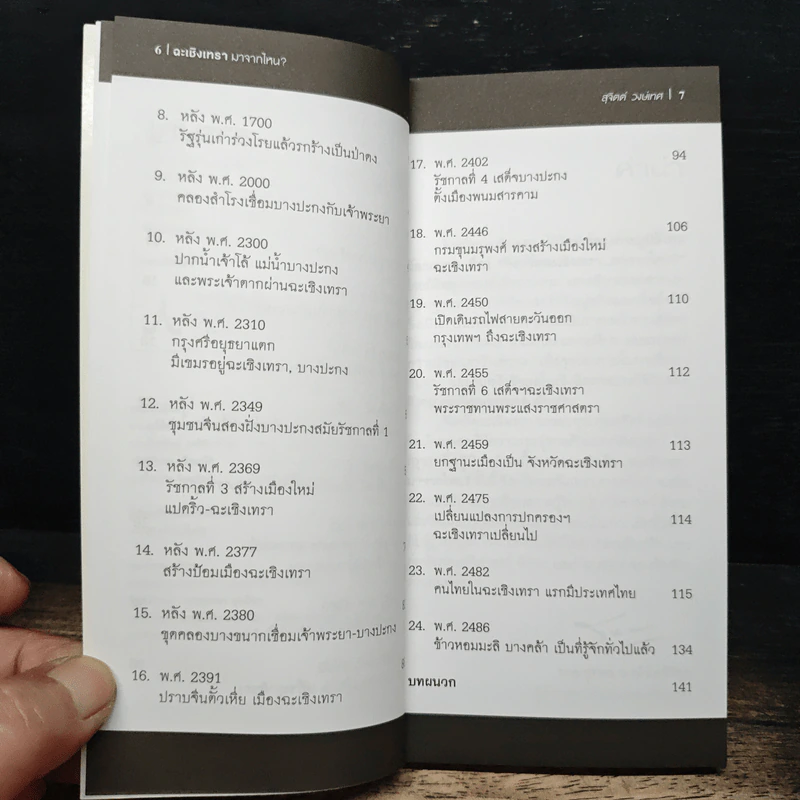 6 | ฉะเชิงเทรา มาจากไหน?
8. หลัง พ.ศ. 1700
รัฐรุ่นเก่าร่วงโรยแล้วรกร้างเป็นป่าดง
9. หลัง พ.ศ. 2000
คลองสำโรงเชื่อมบางปะกงกับเจ้าพระยา
10. หลัง พ.ศ. 2300
ปากน้ำเจ้าโล้ แม่น้ำบางปะกง
และพระเจ้าตากผ่านฉะเชิงเทรา
11. หลัง พ.ศ. 2310
กรุงศรีอยุธยาแตก
มีเขมรอยู่ฉะเชิงเทรา, บางปะกง
12. หลัง พ.ศ. 2349
ชุมชนจีนสองฝั่งบางปะกงสมัยรัชกาลที่ 1
13. หลัง พ.ศ. 2369
รัชกาลที่ 3 สร้างเมืองใหม่
แปดริ้ว-ฉะเชิงเทรา
14. หลัง พ.ศ. 2377
สร้างป้อมเมืองฉะเชิงเทรา
15. หลัง พ.ศ. 2380
ขุดคลองบางขนากเชื่อมเจ้าพระยา-บางปะกง
16. พ.ศ. 2391
ปราบจีนตั้วเหี่ย เมืองฉะเชิงเทรา
สุจิตต์ วงษ์เทศ | 7
17. พ.ศ. 2402 94
รัชกาลที่ 4 เสด็จบางปะกง
ตั้งเมืองพนมสารคาม
18. พ.ศ. 2446 106
กรมขุนมรุพงศ์ ทรงสร้างเมืองใหม่
ฉะเชิงเทรา
19. พ.ศ. 2450 110
เปิดเดินรถไฟสายตะวันออก
กรุงเทพฯ ถึงฉะเชิงเทรา
20. พ.ศ. 2455 112
รัชกาลที่ 6 เสด็จฯฉะเชิงเทรา
พระราชทานพระแสงราชศาสตรา
21. พ.ศ. 2459 113
ยกฐานะเมืองเป็น จังหวัดฉะเชิงเทรา
22. พ.ศ. 2475
เปลี่ยนแปลงการปกครองฯ 114
ฉะเชิงเทราเปลี่ยนไป
23. พ.ศ. 2482
คนไทยในฉะเชิงเทรา แรกมีประเทศไทย 115
24. พ.ศ. 2486
ข้าวหอมมะลิ บางคล้า เป็นที่รู้จักทั่วไปแล้ว 134
บทผนวก 141